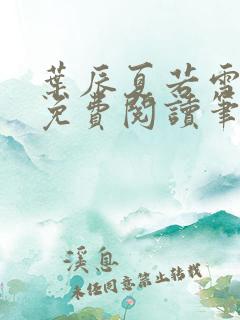 葉辰夏若雪
免費閱讀筆
溪息
未经同意禁止转载